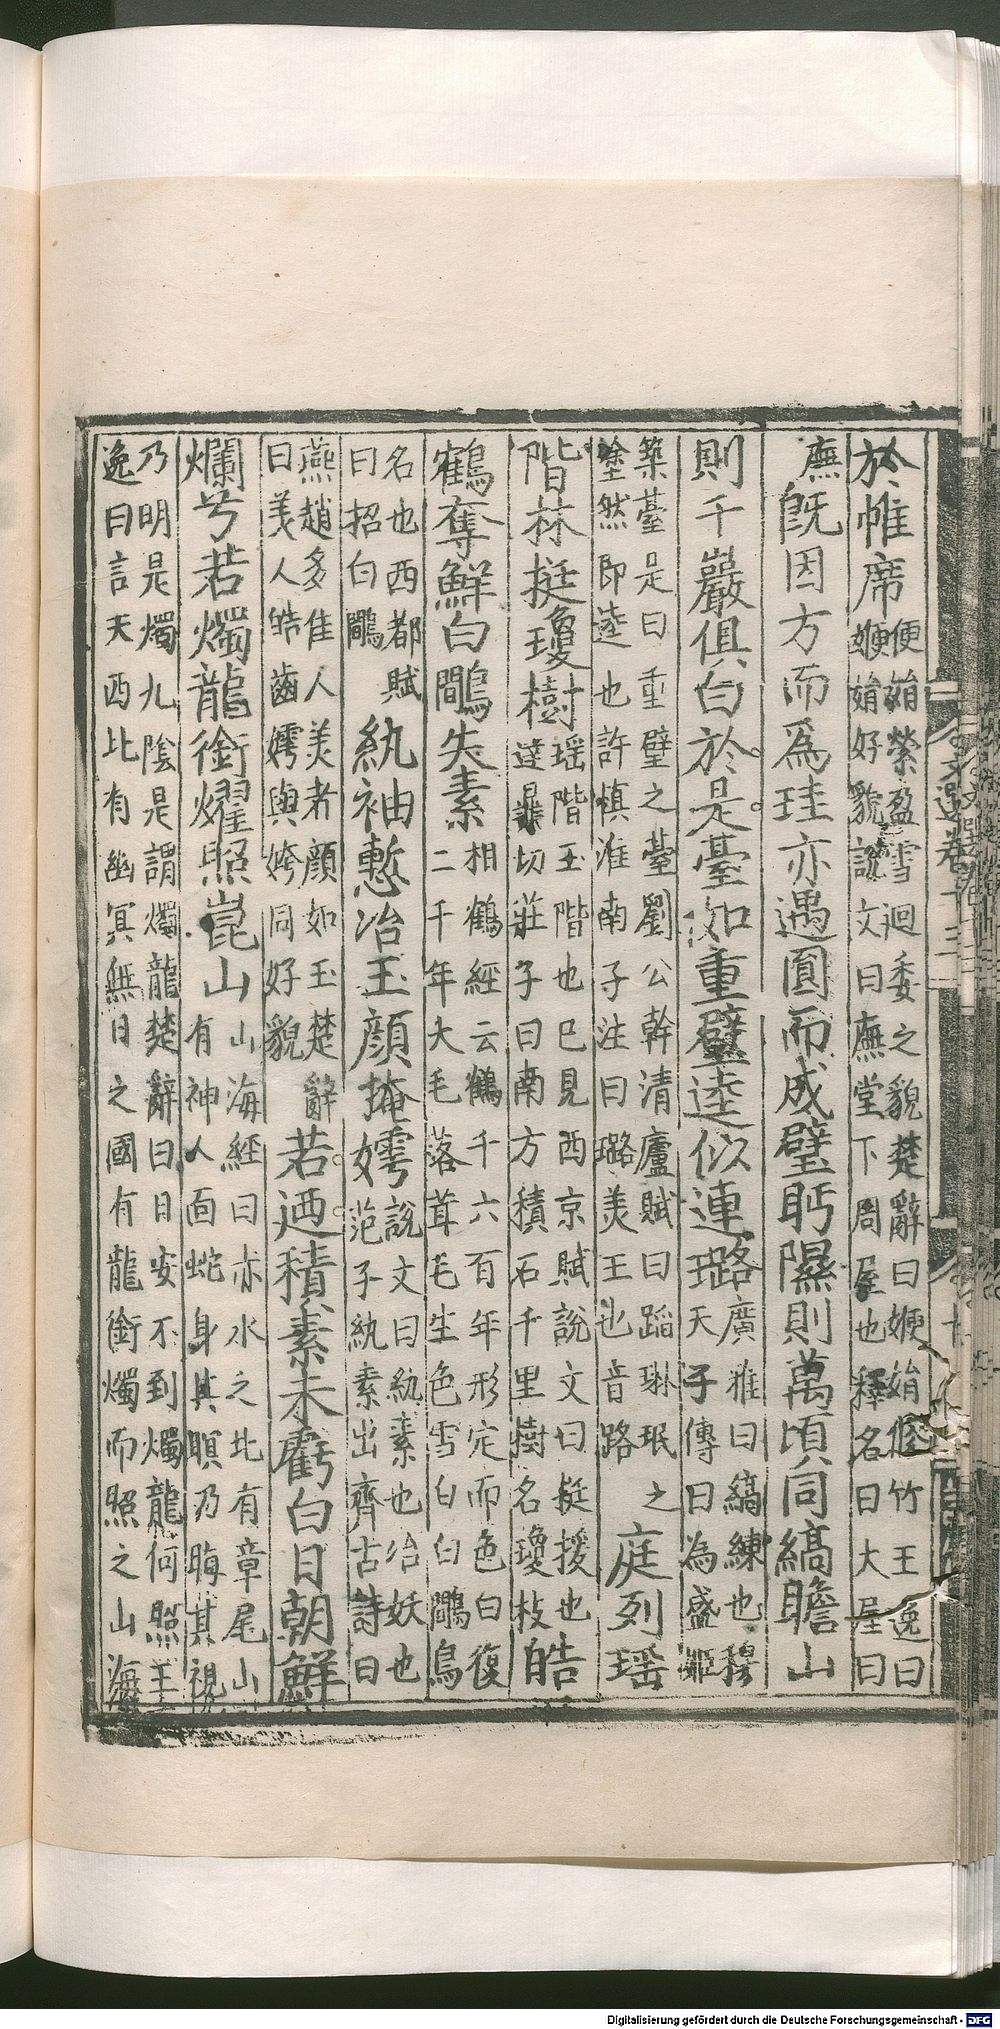 於帷席便娟縈盈雪迴委之貌楚辭曰㛹娟脩竹王逸曰
㛹娟好貌說文曰廡堂下周屋也釋名曰大屋曰
廡旣因方而爲珪亦遇圓而成璧眄隰則萬頃同縞瞻山
則千巖俱白於是臺如重璧逵似連璐廣雅曰縞練也穆
天子傳曰為盛姬
築臺是曰重璧之臺劉公幹清廬賦曰蹈琳珉之
塗然即逵也許慎淮南子注曰璐羙玉也音路庭列瑶
階林挺瓊樹瑶階玉階也已見西京賦說文曰挺拔也
達鼎切莊子曰南方積石千里樹名瓊枝皓
鶴奪鮮白鷴失素相鶴經云鶴千六百年形定而色白復
二千年大毛落茸毛生色雪白白鷴鳥
名也西都賦
曰招白鷴紈袖慙冶玉顏掩嫮說文曰紈素也冶妖也
范子紈素出齊古詩曰
燕趙多佳人羙者顏如玉楚辭
曰羙人皓齒嫮與姱同好貌若迺積素未虧白日朝鮮
爛兮若燭龍銜燿照崑山山海經曰赤水之北有章尾山
有神人面蛇身其瞑乃晦其視
乃明是燭九陰是謂燭龍楚辭曰日安不到燭龍何照王
逸曰言天西北有幽冥無日之國有龍銜燭而照之山海
文選卷十三
十
Digitalisierung gefördert durch die Deutsche Forschungsgemeinschaft - DFG